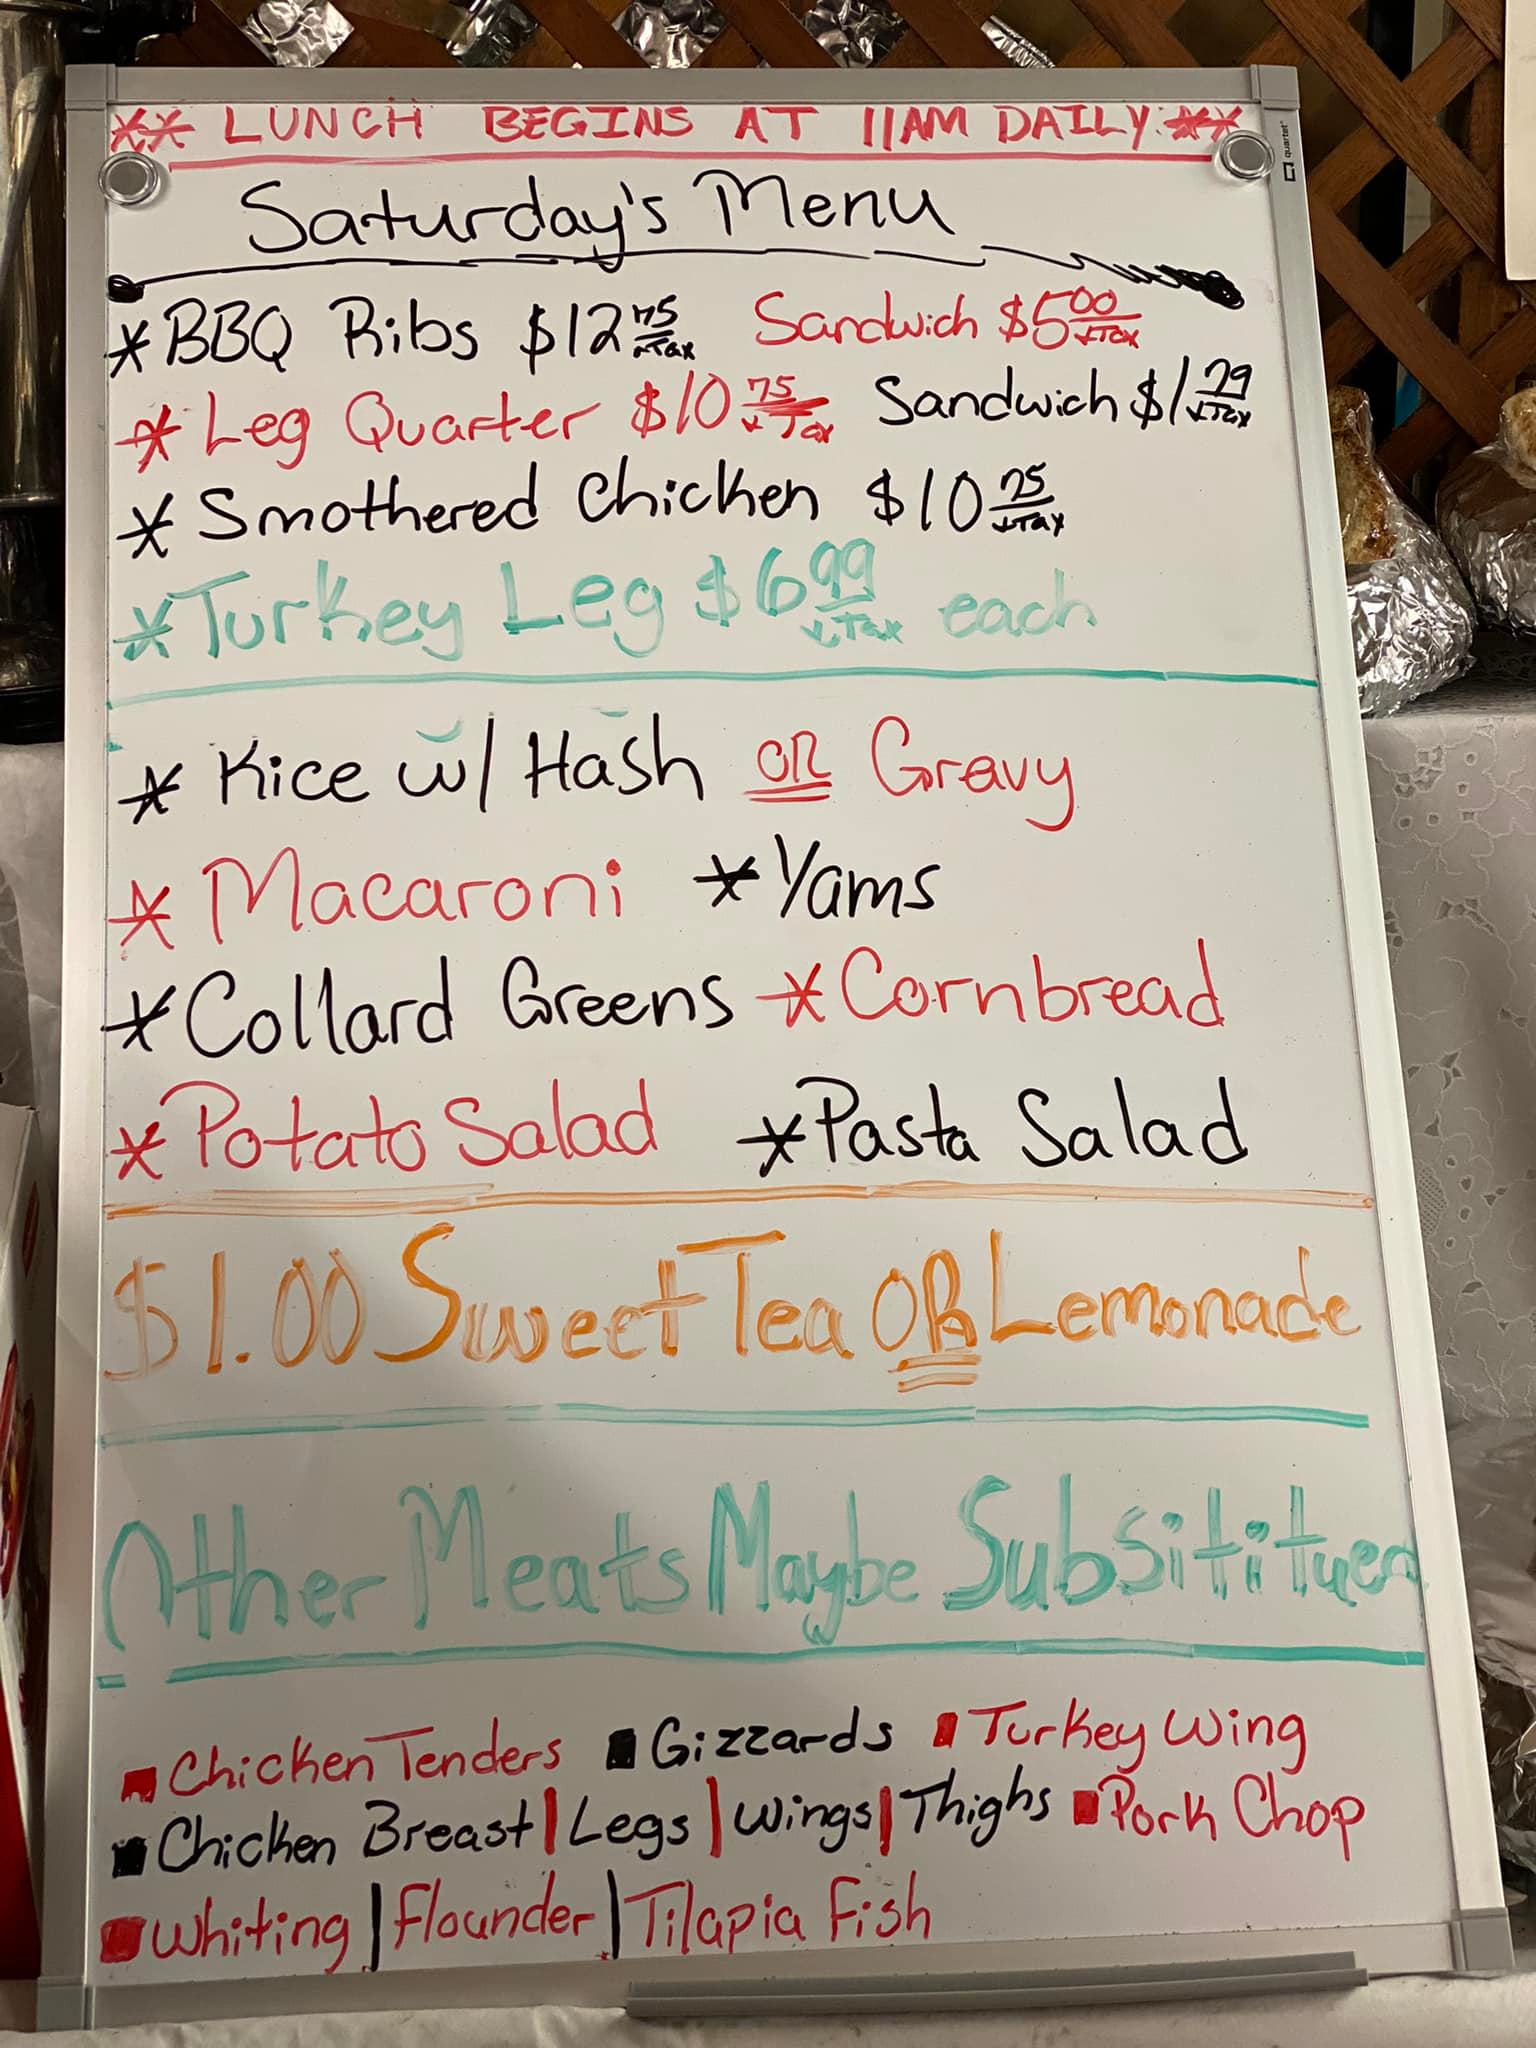 ** LUNCH BEGINS AT 11AM DAILY **
quartet
Saturday's Menu
* BBQ Ribs $12 75 +Tax Sandwich $5 00 +Tax
* Leg Quarter $10 75 +Tax Sandwich $1 79 +Tax
* Smothered Chicken $10 75 +Tax
* Turkey Leg $6 99 +Tax each
* Rice w/ Hash OR Gravy
* Macaroni * Yams
* Collard Greens * Cornbread
* Potato Salad * Pasta Salad
$1.00 Sweet Tea OR Lemonade
Other Meats Maybe Subsititued
Chicken Tenders Gizzards Turkey Wing
Chicken Breast | Legs | Wings | Thighs Pork Chop
Whiting | Flounder | Tilapia Fish